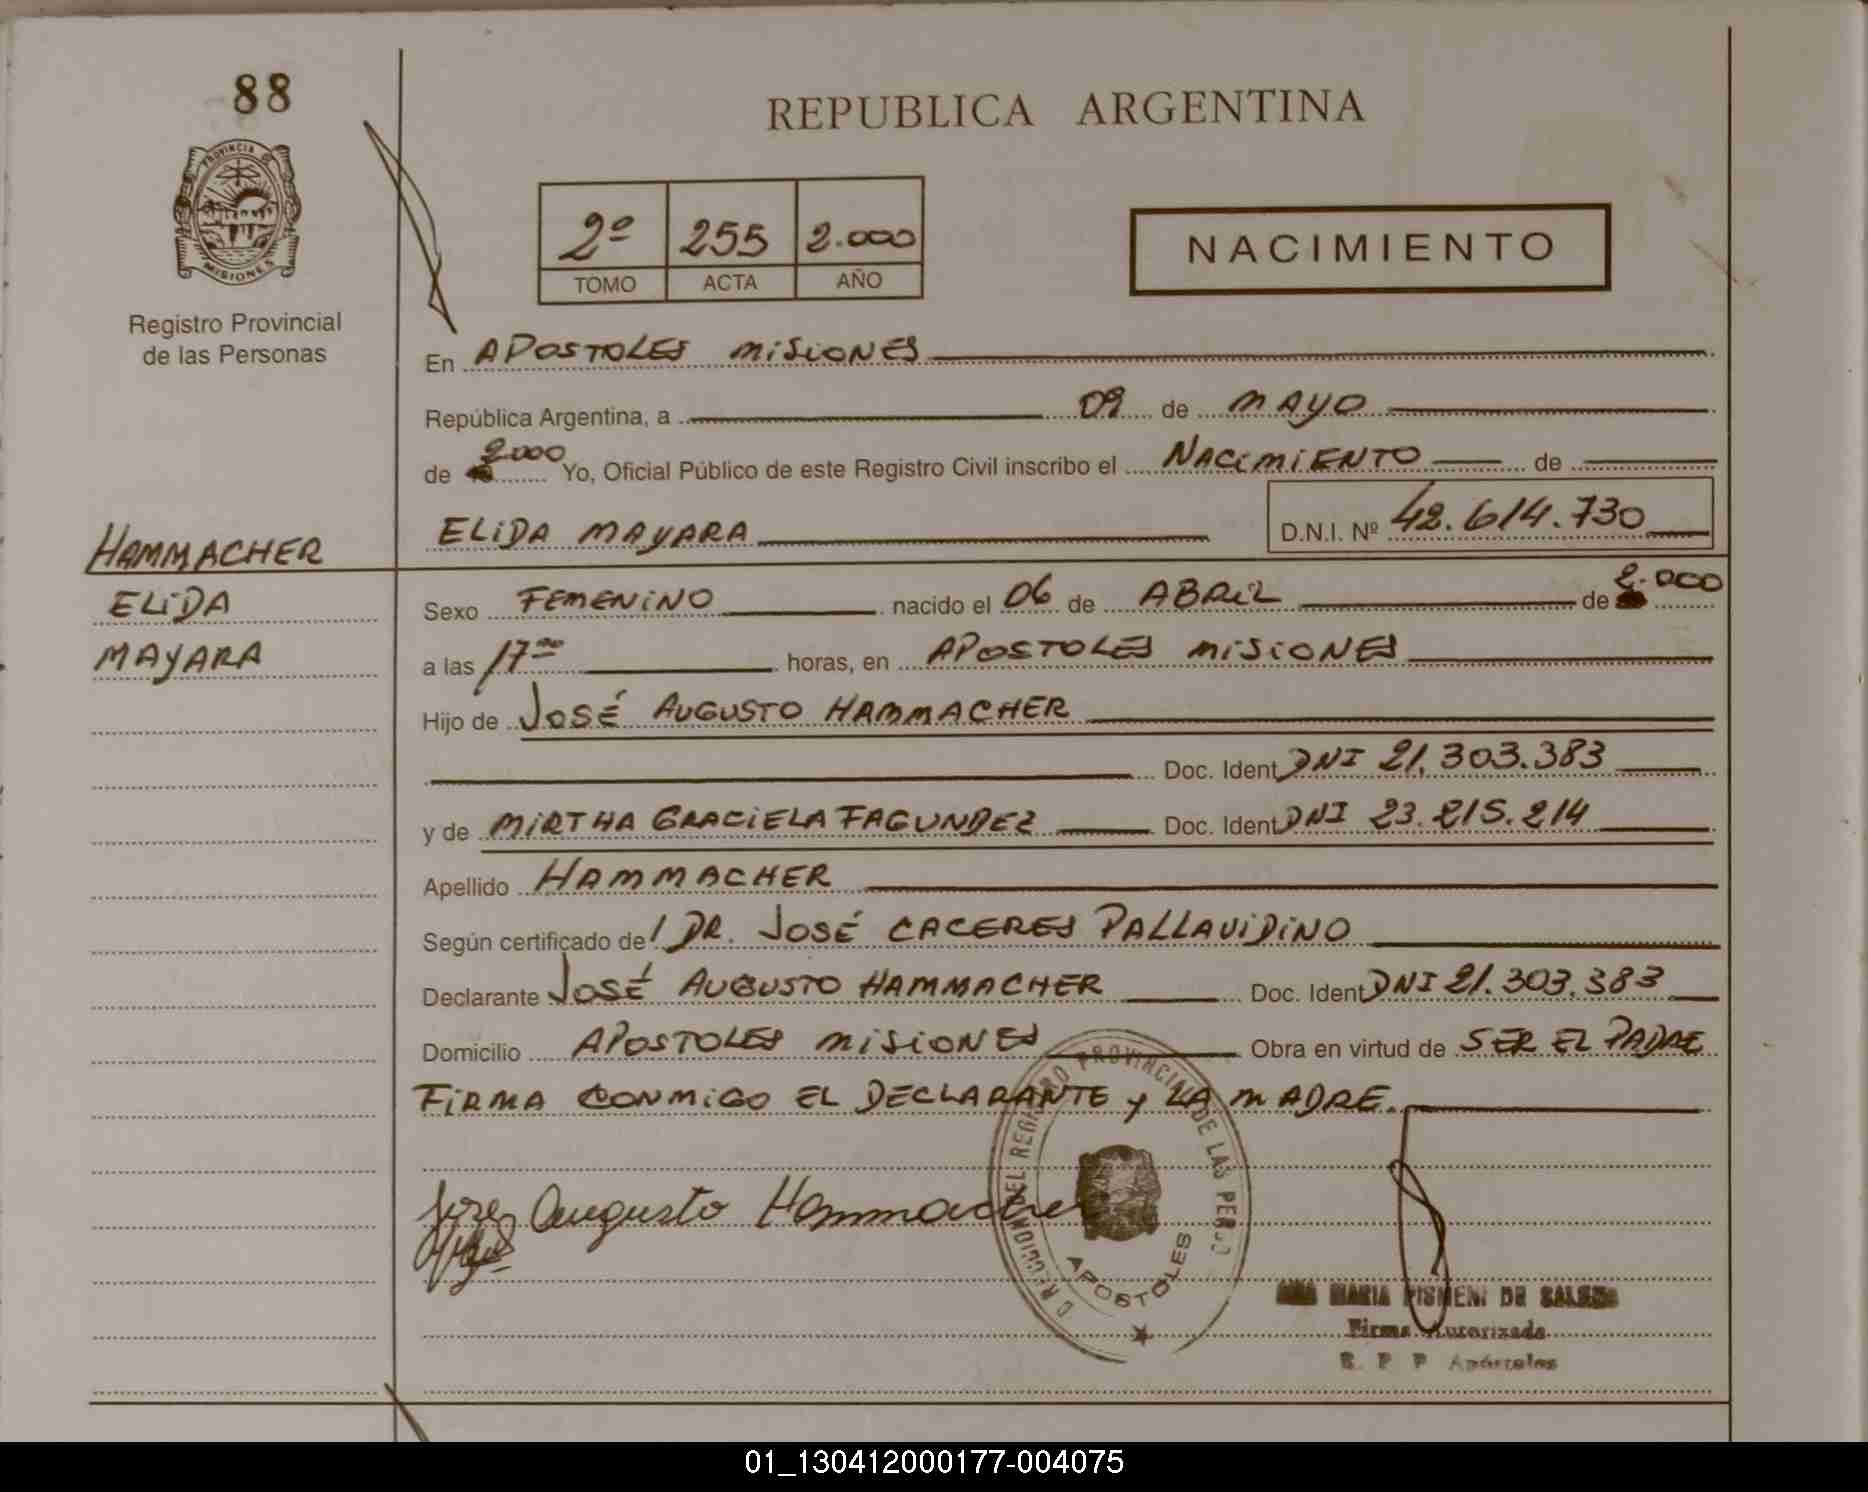 88
REPUBLICA ARGENTINA
PROVINCIA DE
MISIONES
Registro Provincial
de las Personas
2º 255 2.000
TOMO ACTA AÑO
NACIMIENTO
En APOSTOLES MISIONES
República Argentina, a 09 de MAYO
de 2000 Yo, Oficial Público de este Registro Civil inscribo el NACIMIENTO de
ELIDA MAYARA D.N.I. Nº 42.614.730
HAMMACHER
ELIDA
MAYARA
Sexo FEMENINO nacido el 06 de ABRIL de 2.000
a las 17 horas, en APOSTOLES MISIONES
Hijo de JOSÉ AUGUSTO HAMMACHER
Doc. Ident DNI 21.303.383
y de MIRTHA GRACIELA FAGUNDEZ Doc. Ident DNI 23.215.214
Apellido HAMMACHER
Según certificado de DR. JOSÉ CACERES PALLAVIDINO
Declarante JOSÉ AUGUSTO HAMMACHER Doc. Ident DNI 21.303.383
Domicilio APOSTOLES MISIONES Obra en virtud de SER EL PADRE
FIRMA CONMIGO EL DECLARANTE y LA MADRE.
Jose Augusto Hammacher
DEL REGISTRO PROVINCIAL DE LAS PERSO
APOSTOLES
MARIA PISMENI DE
Firma Autorizada
R. P. P Apóstoles
01_130412000177-004075